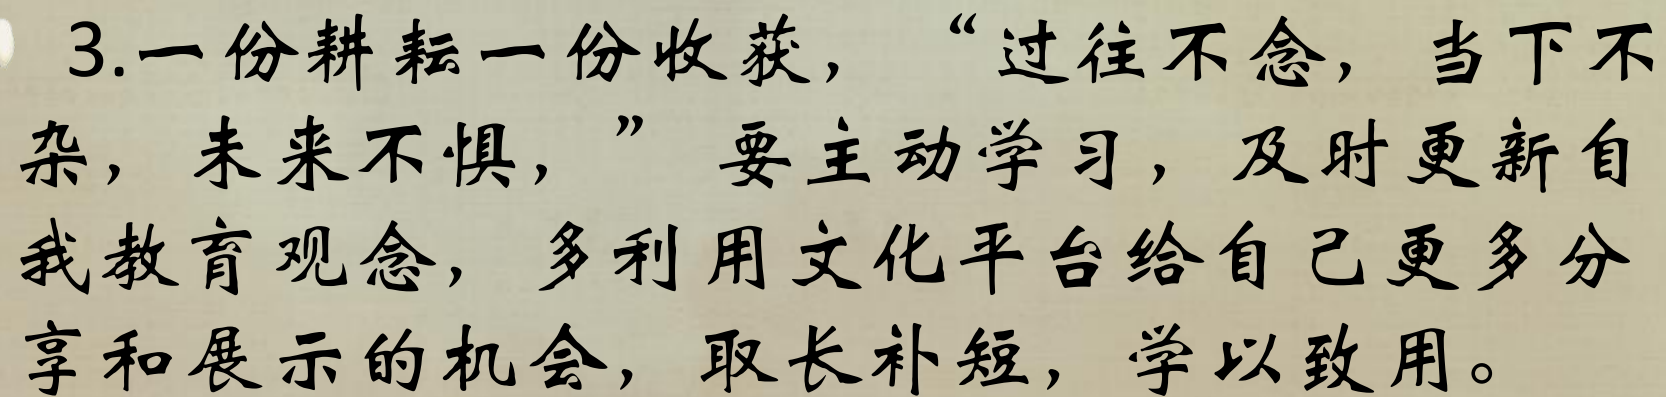 3.一份耕耘一份收获，“过往不念，当下不
杂，未来不惧，”要主动学习，及时更新自
我教育观念，多利用文化平台给自己更多分
享和展示的机会，取长补短，学以致用。